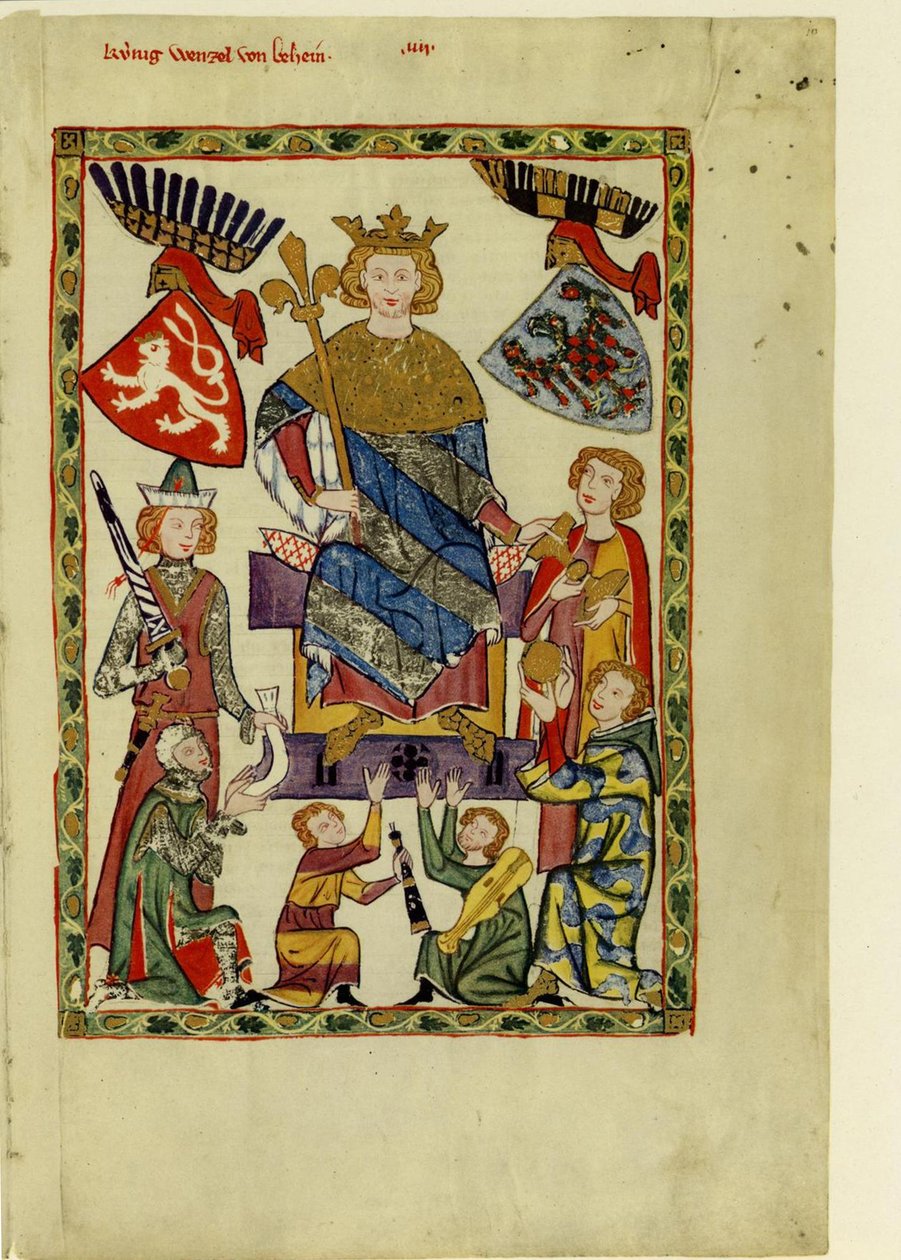 kùnig wenzel von behein· ·iiij·
10